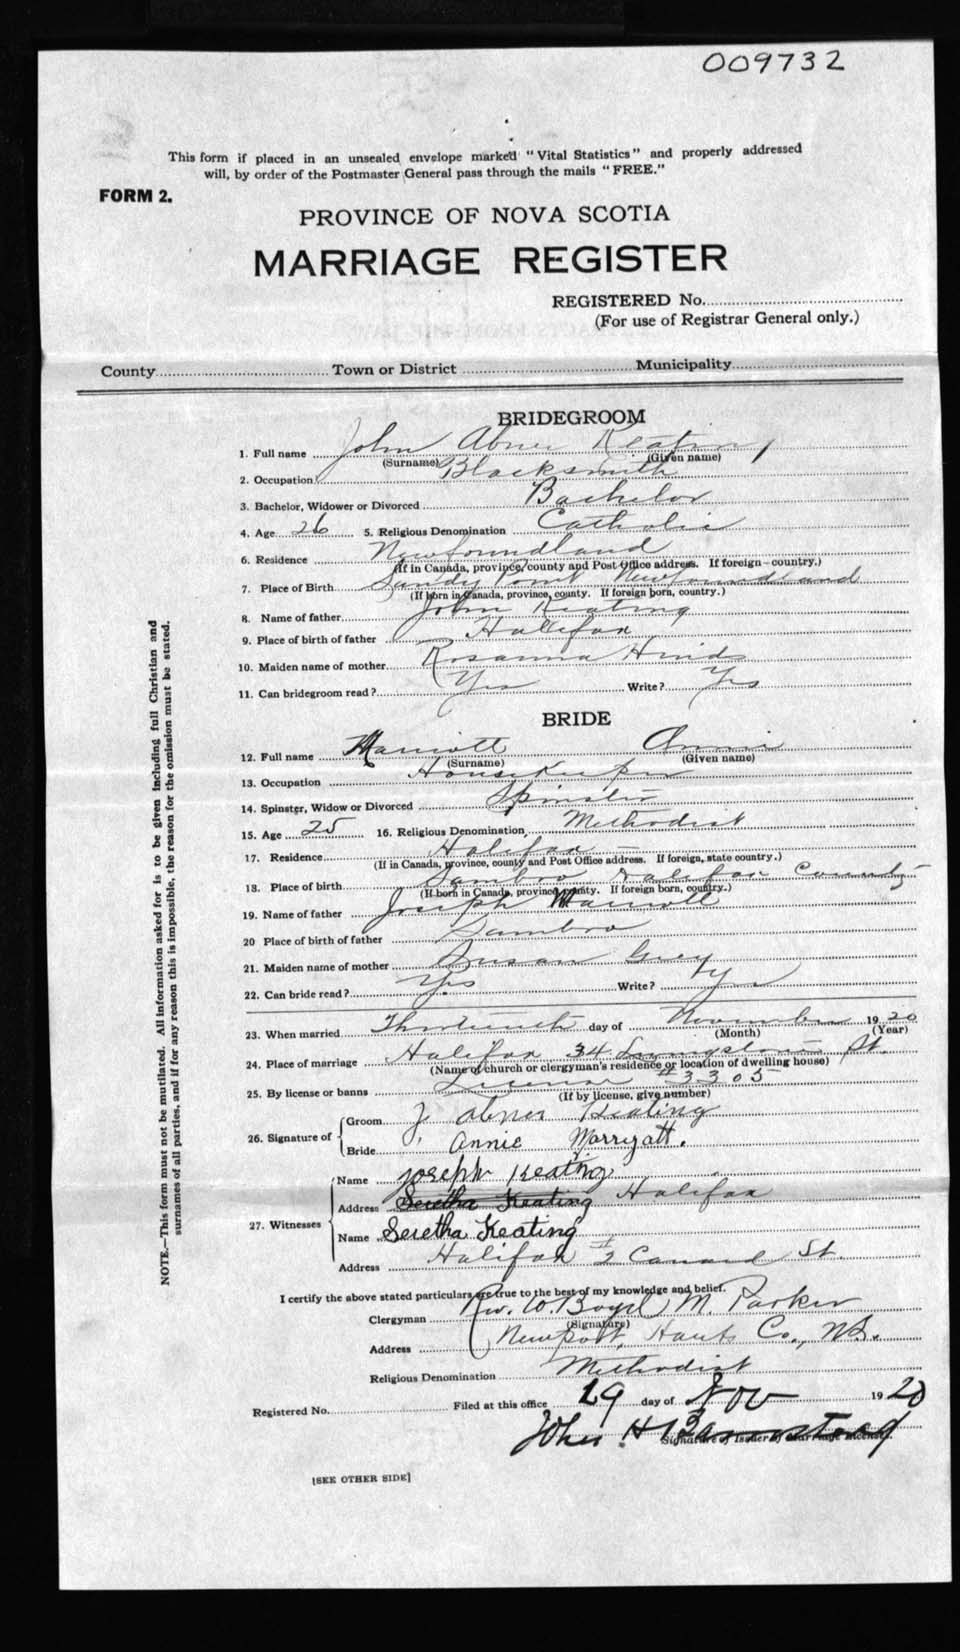 009732
This form if placed in an unsealed envelope marked "Vital Statistics" and properly addressed
will, by order of the Postmaster General pass through the mails "FREE."
FORM 2.
PROVINCE OF NOVA SCOTIA
MARRIAGE REGISTER
REGISTERED No.
(For use of Registrar General only.)
County Town or District Municipality
BRIDEGROOM
1. Full name John Abner Keating
(Surname) (Given name)
2. Occupation Blacksmith
3. Bachelor, Widower or Divorced Bachelor
4. Age 26 5. Religious Denomination Catholic
6. Residence Newfoundland
(If in Canada, province, county and Post Office address. If foreign—country.)
7. Place of Birth Sandy Point Newfoundland
(If born in Canada, province, county. If foreign born, country.)
8. Name of father John Keating
9. Place of birth of father Halifax
10. Maiden name of mother Rosanna Hinds
11. Can bridegroom read? Yes Write? Yes
BRIDE
12. Full name Marriott Annie
(Surname) (Given name)
13. Occupation Housekeeper
14. Spinster, Widow or Divorced Spinster
15. Age 25 16. Religious Denomination Methodist
17. Residence Halifax
(If in Canada, province, county and Post Office address. If foreign, state country.)
18. Place of birth Sambro Halifax County
(If born in Canada, province, county. If foreign born, country.)
19. Name of father Joseph Marriott
20 Place of birth of father Sambro
21. Maiden name of mother Susan Grey
22. Can bride read? Yes Write? Yes
23. When married Thirteenth day of November 1920
(Month) (Year)
24. Place of marriage Halifax 34 Livingstone St.
(Name of church or clergyman's residence or location of dwelling house)
25. By license or banns License #3305
(If by license, give number)
26. Signature of
Groom J. Abner Keating
Bride Annie Marryatt.
27. Witnesses
Name Joseph Keating
Address Seretha Keating Halifax
Name Seretha Keating
Address Halifax 2 Canard St.
I certify the above stated particulars are true to the best of my knowledge and belief.
Clergyman Rev. W. Boyd M. Parker
(Signature)
Address Newport, Hants Co., N.S.
Religious Denomination Methodist
Registered No. Filed at this office 19 day of Nov 1920
John H Barnstead
Signature of Issuer of Marriage License.
[SEE OTHER SIDE]
NOTE.—This form must not be mutilated. All information asked for is to be given including full Christian and
surnames of all parties, and if for any reason this is impossible, the reason for the omission must be stated.